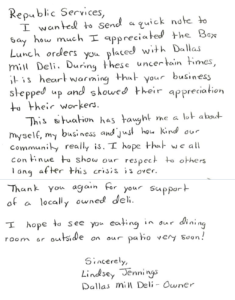 Republic Services,
I wanted to send a quick note to
say how much I appreciated the Box
Lunch orders you placed with Dallas
Mill Deli. During these uncertain times,
it is heartwarming that your business
stepped up and showed their appreciation
to their workers.
This situation has taught me a lot about
myself, my business and just how kind our
community really is. I hope that we all
continue to show our respect to others
long after this crisis is over.
Thank you again for your support
of a locally owned deli.
I hope to see you eating in our dining
room or outside on our patio very soon!
Sincerely,
Lindsey Jennings
Dallas Mill Deli - Owner